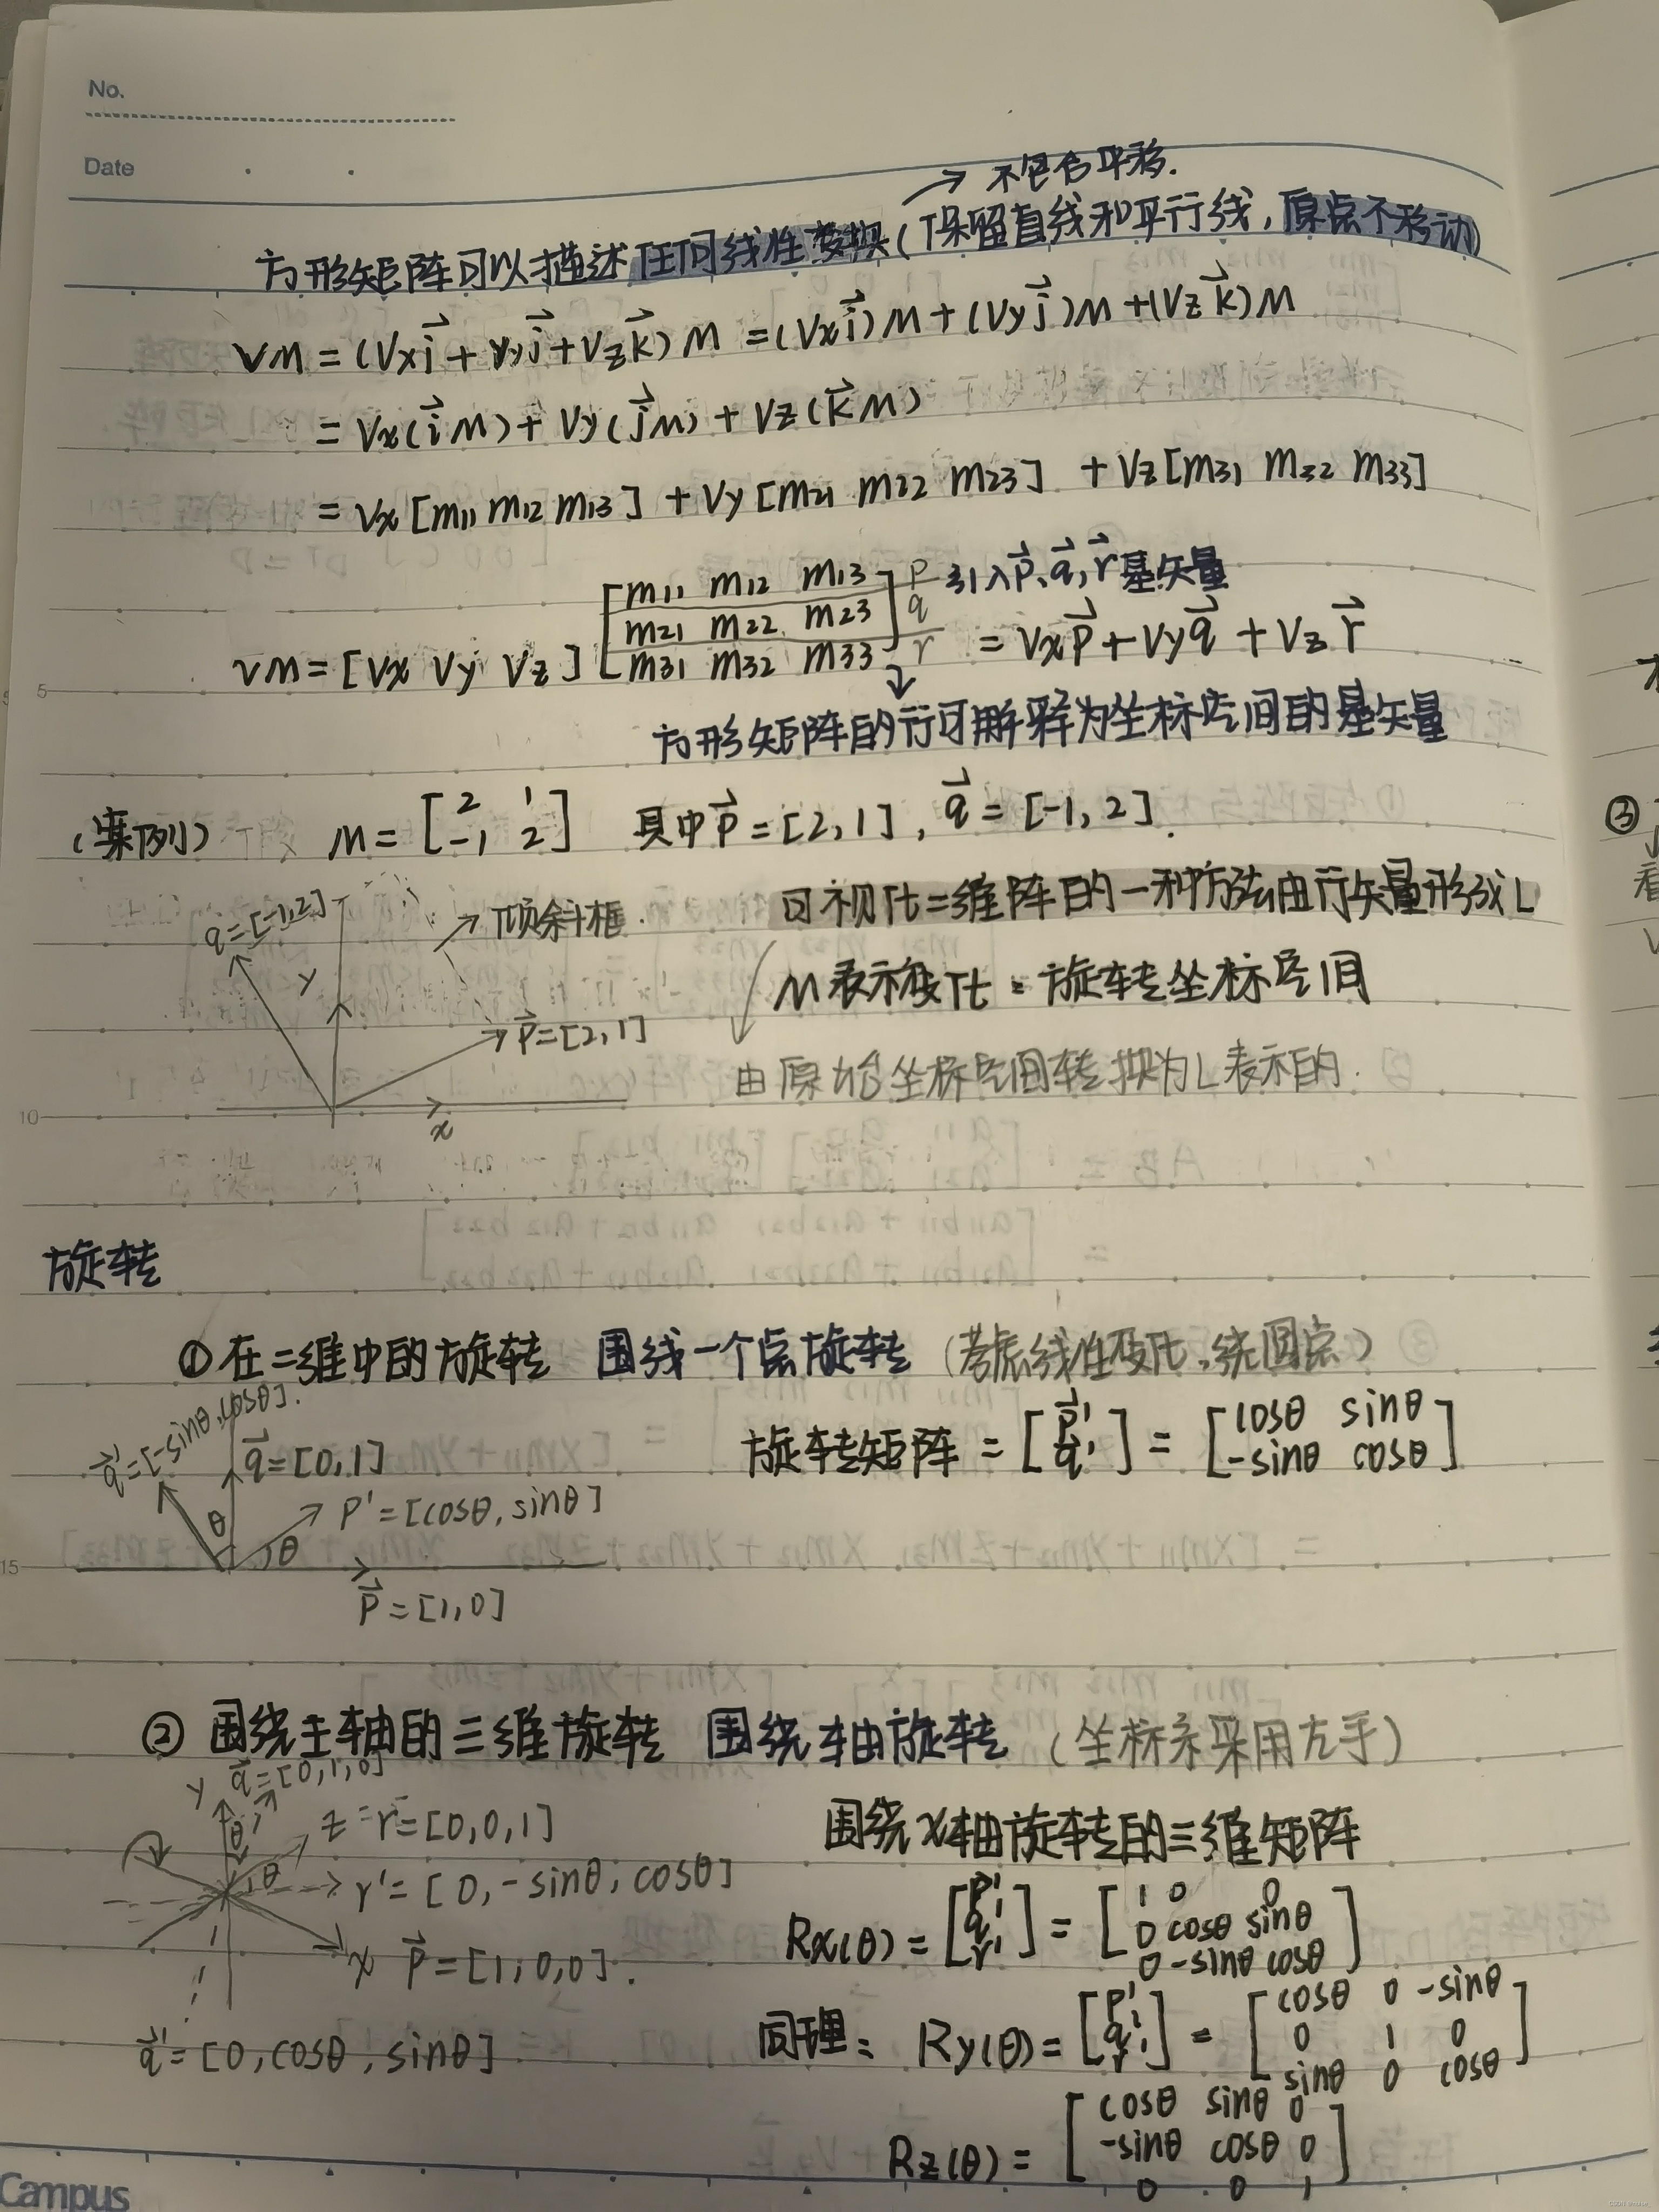 No.
Date
→ 不包含平移.
方形矩阵可以描述任何线性变换(保留直线和平行线,原点不移动)
vM = (Vx i⃗ + Vy j⃗ + Vz k⃗) M = (Vx i⃗) M + (Vy j⃗) M + (Vz k⃗) M
= Vx(i⃗ M) + Vy(j⃗ M) + Vz(k⃗ M)
= Vx [m11 m12 m13] + Vy [m21 m22 m23] + Vz [m31 m32 m33]
引入p⃗、q⃗, r⃗ 基矢量
vM = [Vx Vy Vz] [m11 m12 m13 m21 m22 m23 m31 m32 m33] p q r = Vx p⃗ + Vy q⃗ + Vz r⃗
方形矩阵的行可解释为坐标空间的基矢量
(案例) M = [2 1 -1 2] 其中p⃗ = [2, 1], q⃗ = [-1, 2].
q = [-1, 2] y → 倾斜框. 可视化二维阵的一种方法由行矢量形成L
M表示变化: 旋转坐标空间
p⃗ = [2, 1]
由原始坐标空间转换为L表示的.
10
x
旋转
① 在二维中的旋转 围绕一个点旋转 (考虑线性变化,绕圆点)
q⃗' = [-sinθ, cosθ].
q⃗ = [0, 1] 旋转矩阵 = [p⃗' q⃗'] = [cosθ sinθ -sinθ cosθ]
θ p' = [cosθ, sinθ]
θ
15
p⃗ = [1, 0]
② 围绕主轴的三维旋转 围绕轴旋转 (坐标系采用左手)
y q⃗ = [0, 1, 0]
z = r = [0, 0, 1] 围绕x轴旋转的三维矩阵
θ θ r' = [0, -sinθ, cosθ]
Rx(θ) = [p' q' r'] = [1 0 0 0 cosθ sinθ 0 -sinθ cosθ]
x p⃗ = [1, 0, 0].
q⃗' = [0, cosθ, sinθ] 同理: Ry(θ) = [p' q' r'] = [cosθ 0 -sinθ 0 1 0 sinθ 0 cosθ]
Rz(θ) = [cosθ sinθ 0 -sinθ cosθ 0 0 0 1]
Campus